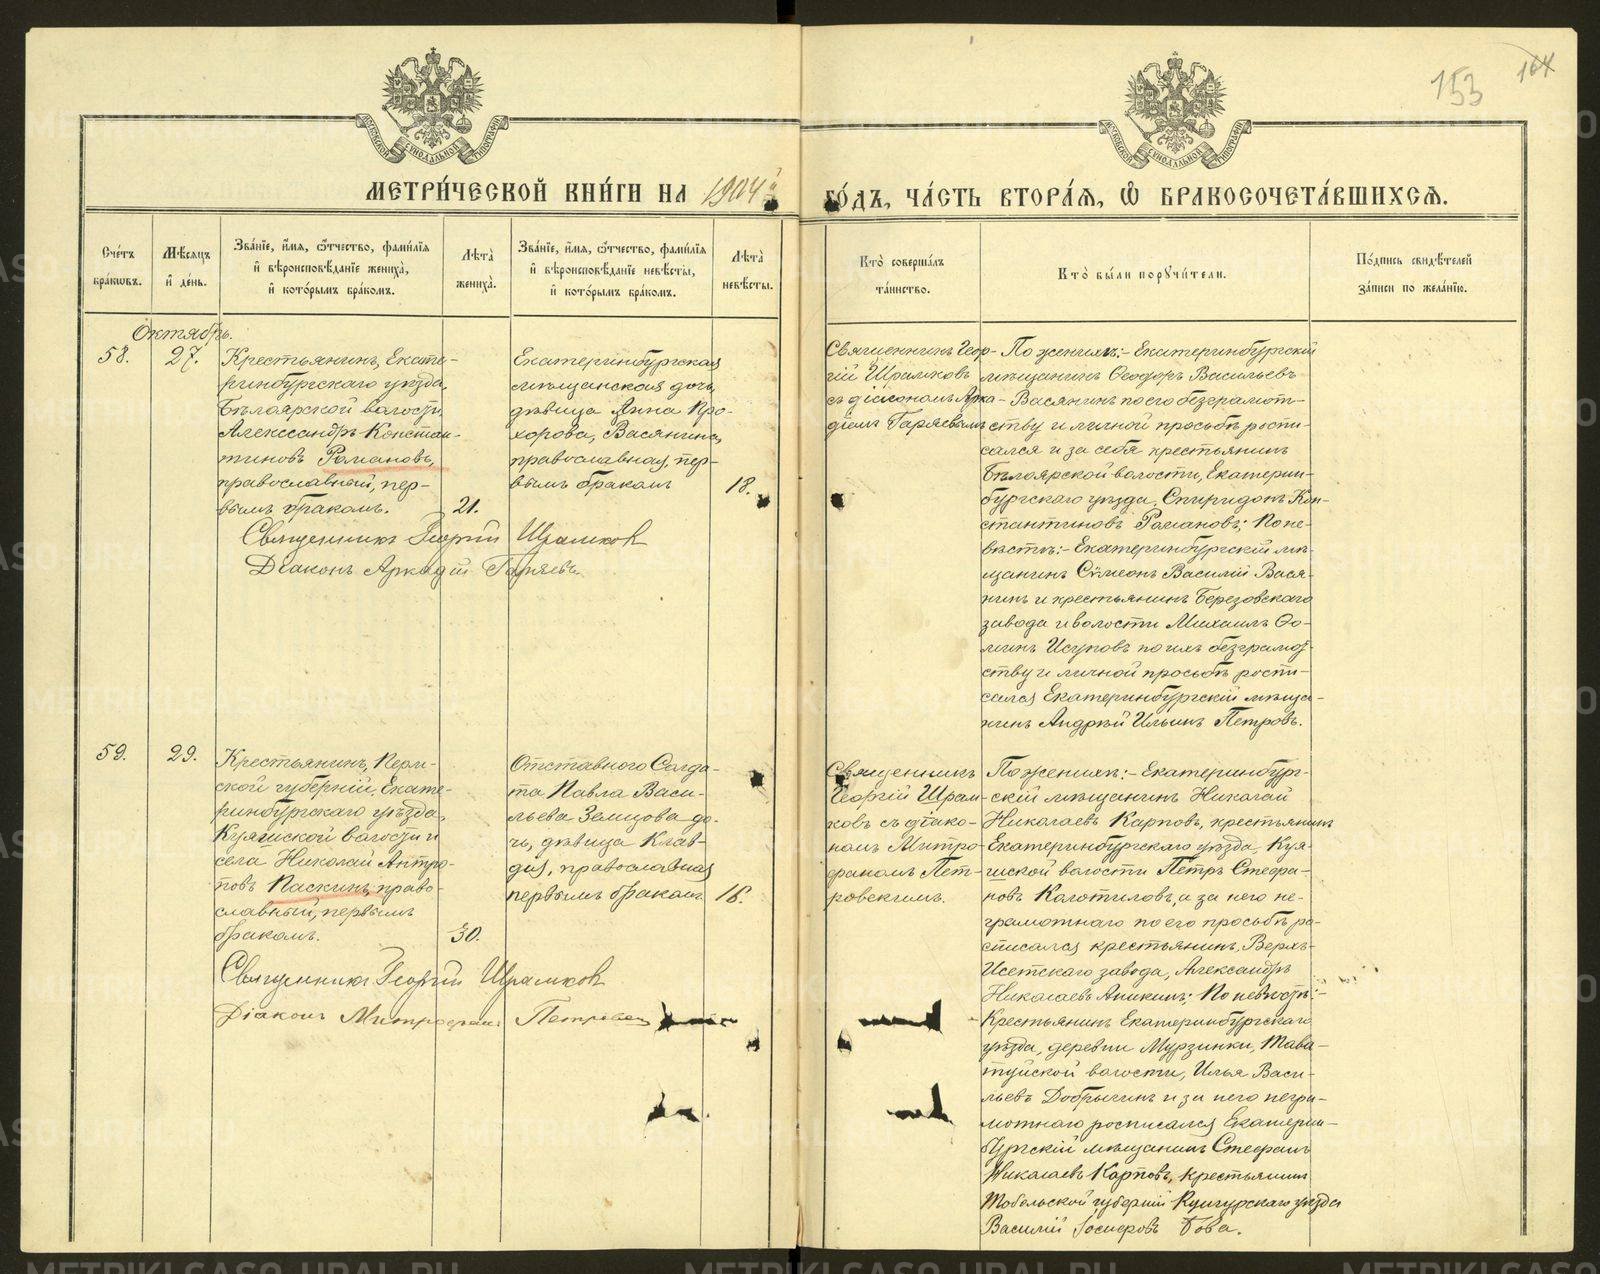 153
164
МОСКОВСКОЙ СѴНОДАЛЬНОЙ ТИПОГРАФІИ
МОСКОВСКОЙ СѴНОДАЛЬНОЙ ТИПОГРАФІИ
МЕТРИ́ЧЕСКОЙ КНИ́ГИ НА 1904й
ГО́ДЪ, ЧА́СТЬ ВТОРА́Я, Ѽ БРАКОСОЧЕТА́ВШИХСЯ.
Сче́тъ
бра́кѡвъ.
Мѣ́сяцъ
и҆ де́нь.
Зва́нїе, и҆́мя, ѻ҆́тчество, фами́лїя
и҆ вѣроисповѣ́данїе жениха̀,
и҆ кото́рымъ бра́комъ.
Лѣ́та̀
жениха̀.
Зва́нїе, и҆́мя, ѻ҆́тчество, фами́лїя
и҆ вѣроисповѣ́данїе невѣ́сты,
и҆ кото́рымъ бра́комъ.
Лѣ́та̀
невѣ́сты.
Кто̀ соверша́лъ
та́инство.
Кто̀ бы́ли порꙋчи́тели.
По́дпись свидѣ́телей
за́писи по жела́нїю.
Октябрь.
58.
27.
Крестьянинъ, Екате-
ринбургскаго уѣзда,
Бѣлоярской волости,
Александръ Констан-
тиновъ Романовъ,
православный, пер-
вымъ бракомъ.
21.
Екатеринбургская
мѣщанская дочь,
дѣвица Анна Про-
хорова, Васянина,
православная, пер-
вымъ бракомъ
18.
Священникъ Георгій Шрамковъ
Діаконъ Аркадій Гаряевъ.
Священникъ Геор-
гій Шрамковъ
съ діакономъ Арка-
діемъ Гаряевымъ
По женихѣ:- Екатеринбургскій
мѣщанинъ Ѳеодоръ Васильевъ
Васянинъ по его безграмот-
ству и личной просьбѣ роспи-
сался и за себя крестьянинъ
Бѣлоярской волости, Екатерин-
бургскаго уѣзда, Спиридонъ Кон-
стантиновъ Романовъ; По не-
вѣстѣ:- Екатеринбургскій мѣ-
щанинъ Сѵмеонъ Василій Вася-
нинъ и крестьянинъ Березовскаго
завода и волости Михаилъ Ѳо-
минъ Исуповъ по ихъ безграмот-
ству и личной просьбѣ роспи-
сался Екатеринбургскій мѣща-
нинъ Андрей Ильинъ Петровъ.
59.
29.
Крестьянинъ, Перм-
ской губерніи, Екате-
ринбургскаго уѣзда,
Куяшской волости и
села Николай Антро-
повъ Паскинъ, право-
славный, первымъ
бракомъ.
30.
Отставного Солда-
та Павла Васи-
льева Земцова до-
чь, дѣвица Клав-
дія, православная
первымъ бракомъ
16.
Священникъ Георгій Шрамковъ
Діаконъ Митрофанъ
Священникъ
Георгій Шрам-
ковъ съ діако-
номъ Митро-
фаномъ Пет-
ровскимъ.
По женихѣ:- Екатеринбург-
скій мѣщанинъ Николай
Николаевъ Карповъ, крестьянинъ
Екатеринбургскаго уѣзда, Куя-
шской волости Петръ Стефа-
новъ Колотиловъ, и за него не-
грамотнаго по его просьбѣ ро-
списался крестьянинъ, Верхъ-
Исетскаго завода, Александръ
Николаевъ Аникинъ; По невѣстѣ:-
Крестьянинъ Екатеринбургскаго
уѣзда, деревни Мурзинки, Тава-
туйской волости, Илья Васи-
льевъ Добрыгинъ и за него негра-
мотнаго росписался Екатерин-
бургскій мѣщанинъ Стефанъ
Николаевъ Карповъ, крестьянинъ
Тобольской губерніи Кунгурскаго уѣзда
Василій